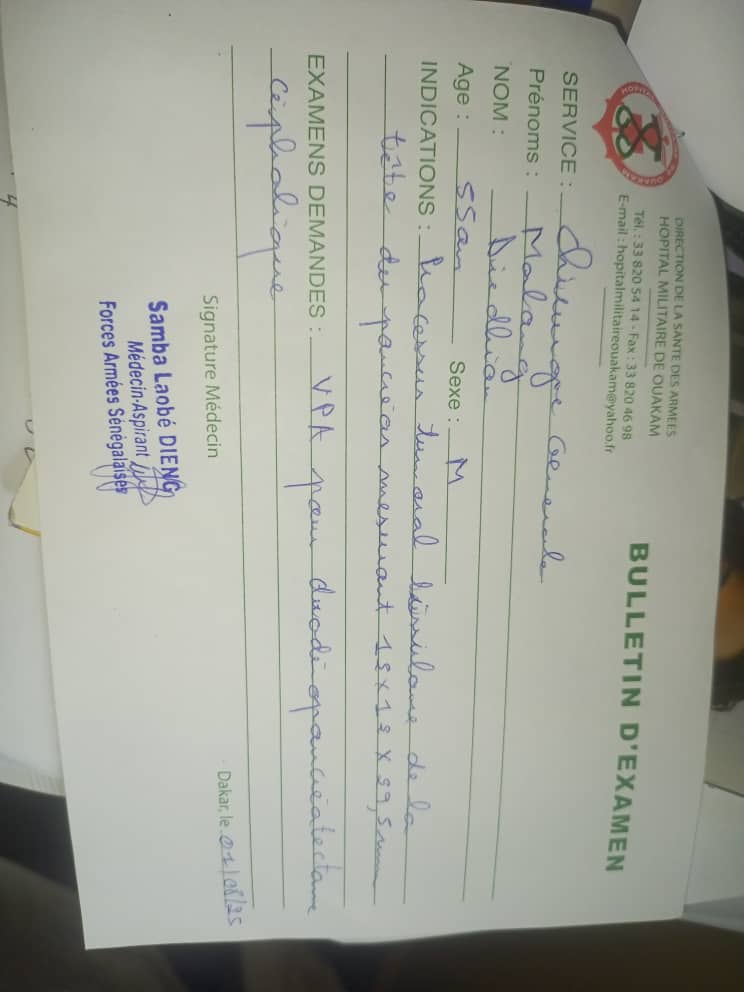 DIRECTION DE LA SANTE DES ARMEES
HOPITAL MILITAIRE DE OUAKAM
Tél. : 33 820 54 14 - Fax : 33 820 46 98
E-mail : hopitalmilitaireouakam@yahoo.fr
HOPITAL
OUAKAM
BULLETIN D'EXAMEN
SERVICE : Chirurgie Generale
Prénoms : Malang
NOM : Diedhiou
Age : 55an Sexe : M
INDICATIONS : Processus tumoral tissulaire de la
tête du pancréas mesurant
EXAMENS DEMANDES : VPA pour duodénopancréatectomie
Céphalique
Signature Médecin
Dakar, le 01/08/25
Samba Laobé DIENG
Médecin-Aspirant
Forces Armées Sénégalaises